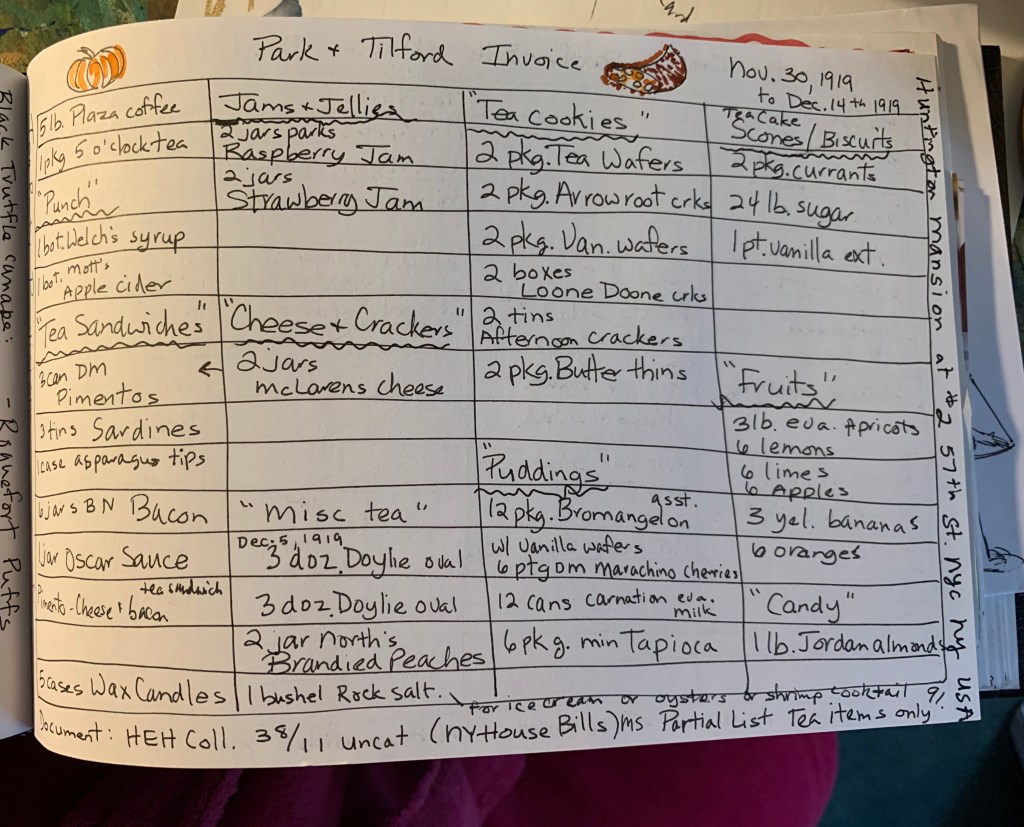 Park + Tilford Invoice
Nov. 30, 1919
to Dec. 14th 1919
5 lb. Plaza coffee
Jams + Jellies
"Tea Cookies"
Tea Cake
Scones / Biscuits
1 pkg 5 o'clock tea
2 jars parks
Raspberry Jam
2 pkg. Tea Wafers
2 pkg. currants
"Punch"
2 jars
Strawberry Jam
2 pkg. Arrowroot crks
24 lb. sugar
1 bot. Welch's syrup
2 pkg. Van. wafers
1 pt. vanilla ext.
1 bot. Mott's
Apple cider
2 boxes
Loone Doone crks
"Tea Sandwiches"
"Cheese + Crackers"
2 tins
Afternoon crackers
3 can DM
Pimentos
← 2 jars
McLarens cheese
2 pkg. Butter thins
"Fruits"
3 tins Sardines
3 lb. eva. Apricots
6 lemons
1 case asparagus tips
"Puddings"
6 limes
6 Apples
6 jars BN Bacon
"Misc tea"
12 pkg. Bromangelon asst.
3 yel. bananas
1 jar Oscar Sauce
Dec. 5, 1919
3 doz. Doylie oval
w/ vanilla wafers
6 ptg DM Marachino cherries
6 oranges
tea sandwich
Pimento-Cheese + bacon
3 doz. Doylie oval
12 cans carnation eva.
milk
"Candy"
2 jar North's
Brandied Peaches
6 pkg. min Tapioca
1 lb. Jordan almonds
5 cases Wax Candles
1 bushel Rock salt.
for ice cream or oysters or shrimp cocktail
Document: HEH Coll. 38/11 uncat (NY House Bills) MS Partial List Tea items only
Huntington mansion at #2 57th St. NYC NY USA
Black Truffle canape:
- Roquefort Puffs
and